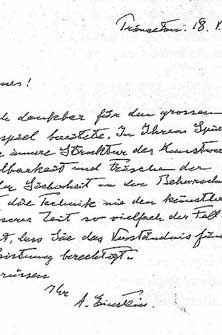 Princeton. 18.
!
dankbar für den grossen
spiel bereitete. In Ihrem Spiel
innere Struktur des Kunstwer
und Frische der
Sicherheit in der Beherrschu
die Technik nie den künstler
serer Zeit so vielfach der Fall
t, dass Sie das Verständnis für
eistung berechtigt.
rüssen
Ihr
A. Einstein.